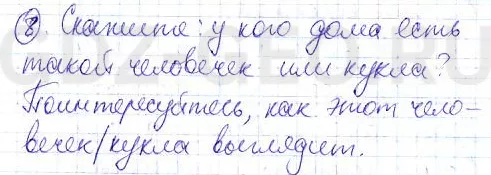 8. Скажите: у кого дома есть
такой человечек или кукла?
Поинтересуйтесь, как этот чело-
вечек/кукла выглядит.